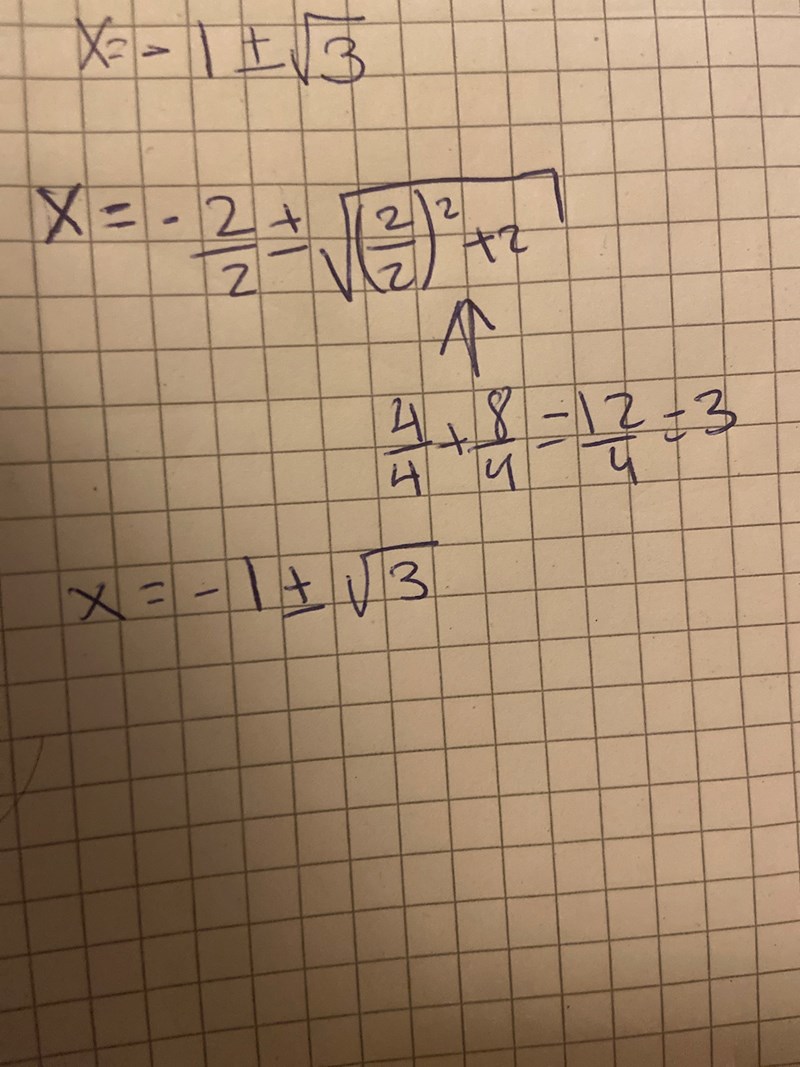 x = - 1 ± √3
x = - 2/2 ± √((2/2)² + 2)
↑
4/4 + 8/4 = 12/4 = 3
x = - 1 ± √3